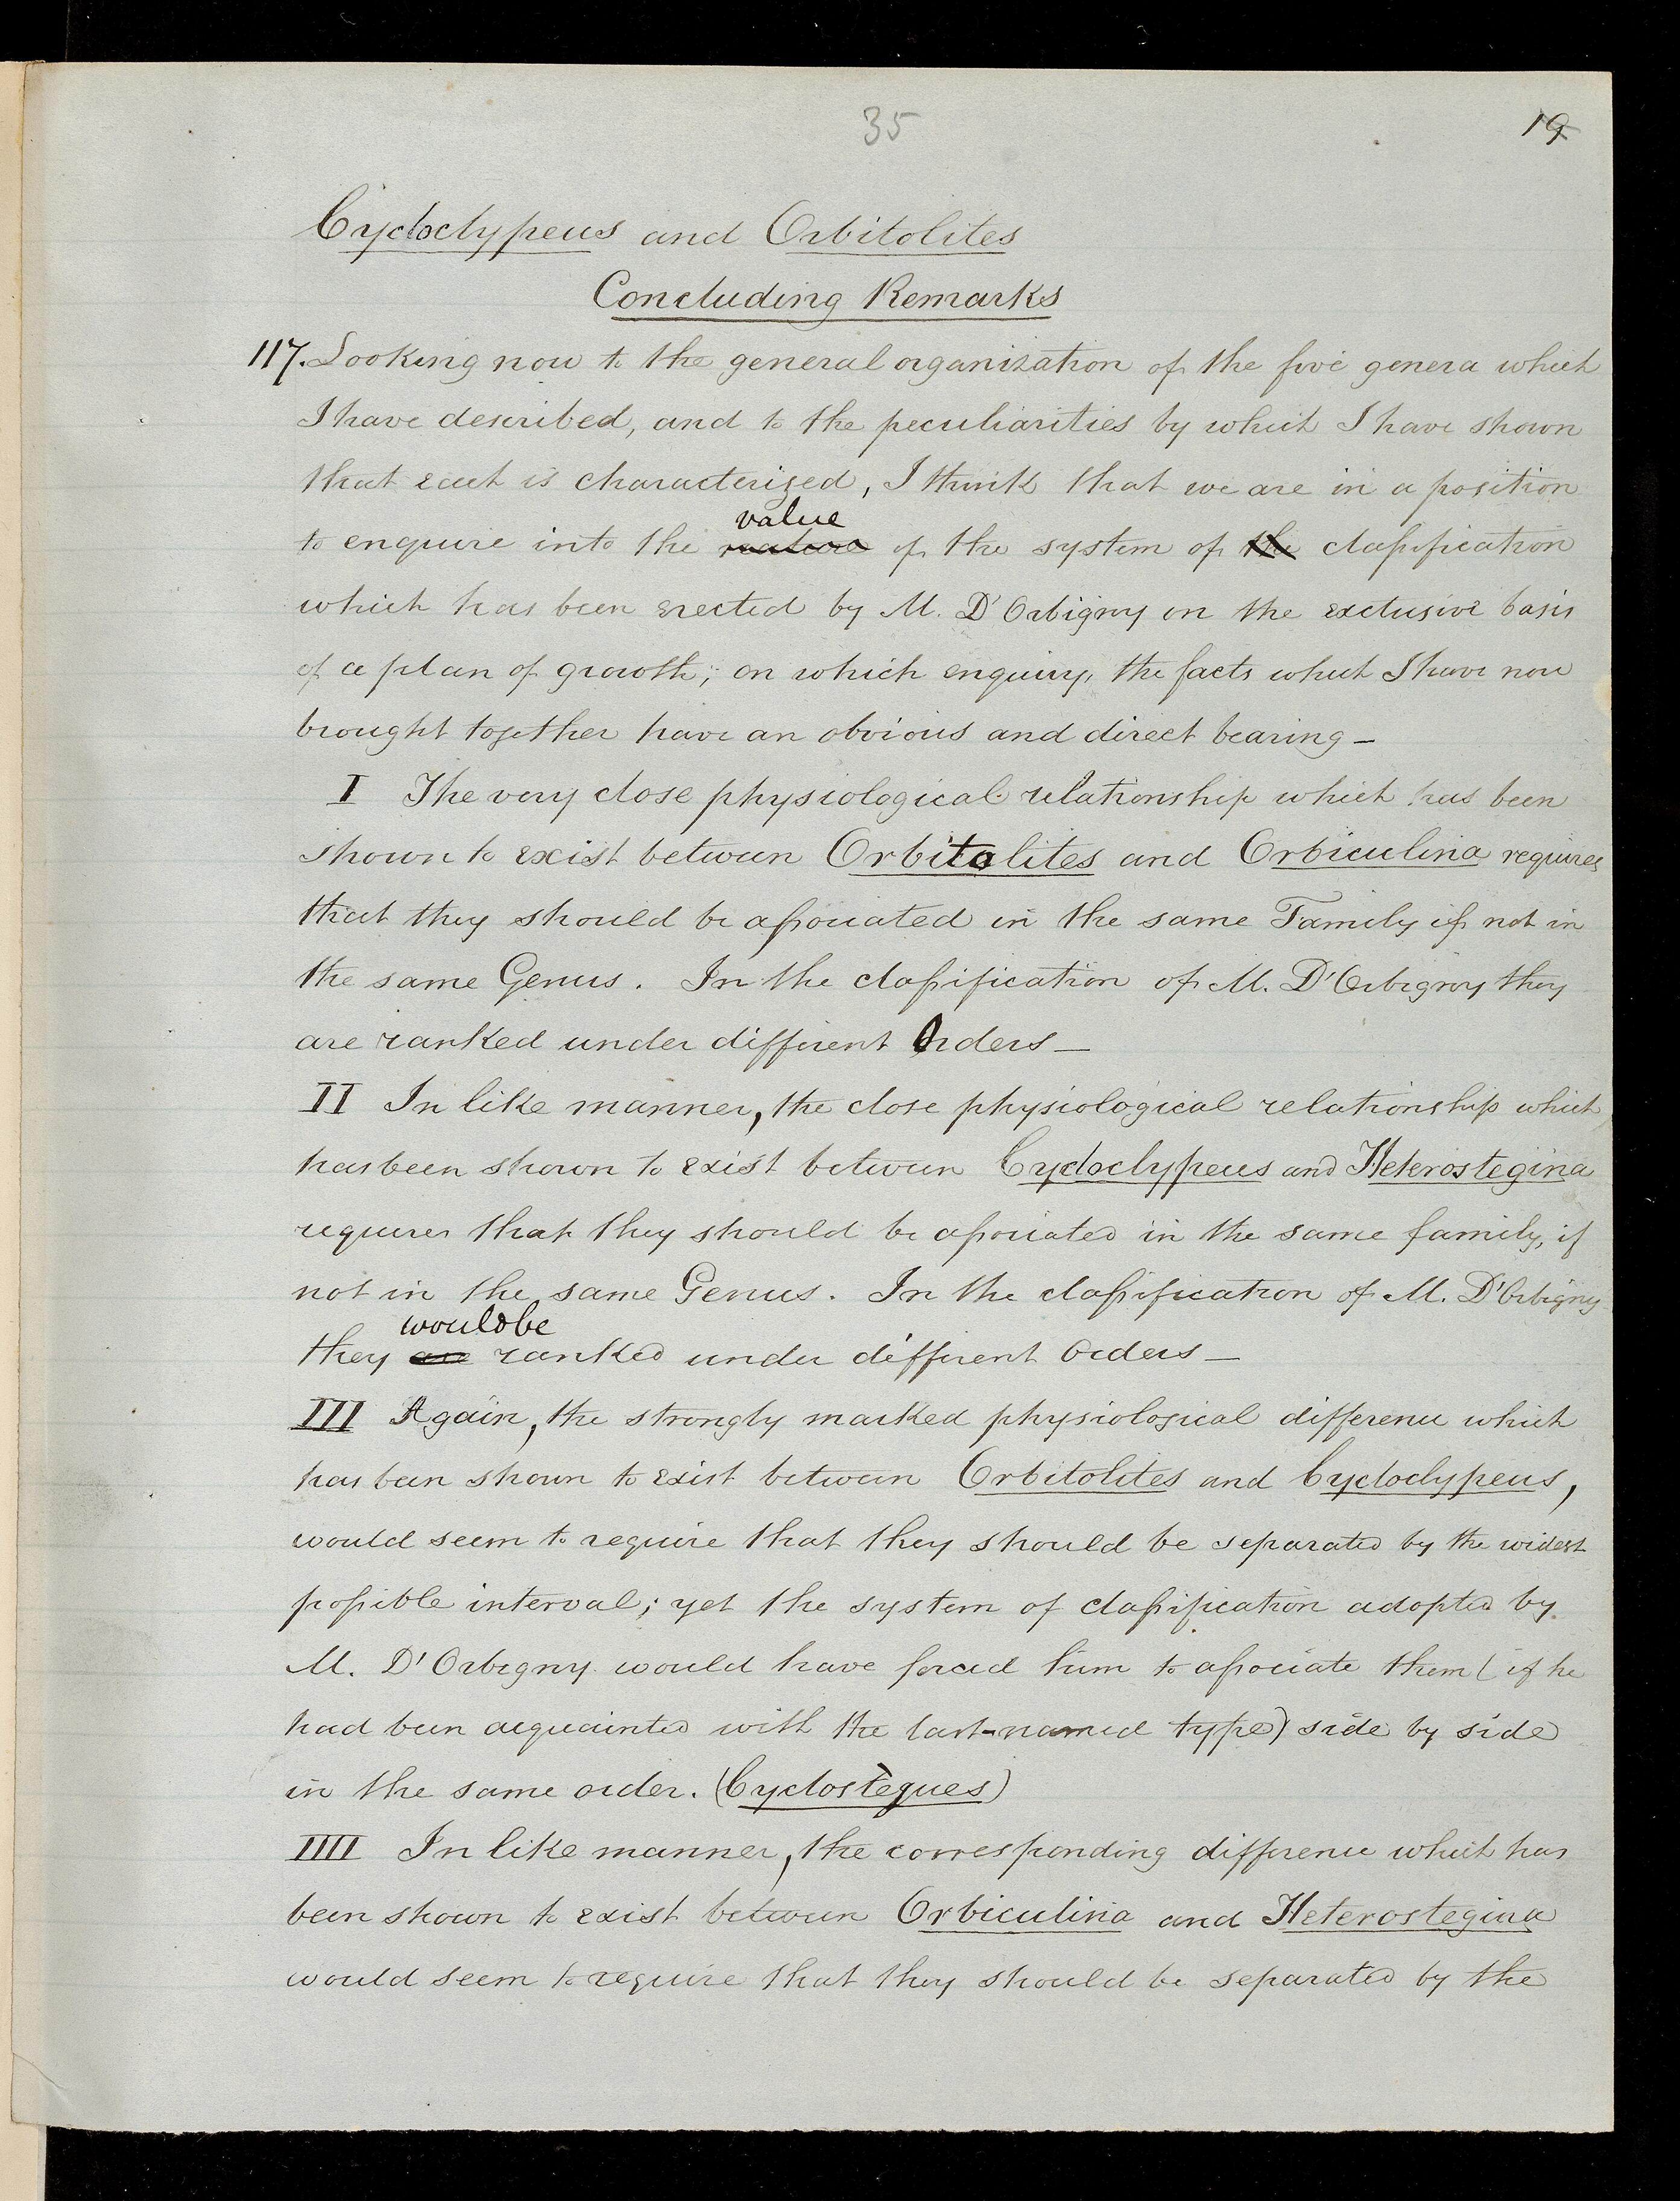 35
19
Cycloclypeus and Orbitolites
Concluding Remarks
117. Looking now to the general organization of the five genera which
I have described, and to the peculiarities by which I have shown
that each is characterized, I think that we are in a position
value
to enquire into the nature of the system of the classification
which has been erected by M. D'Orbigny on the exclusive basis
of a plan of growth; on which enquiry, the facts which I have now
brought together have an obvious and direct bearing—
I The very close physiological relationship which has been
shown to exist between Orbitolites and Orbiculina requires
that they should be associated in the same Family if not in
the same Genus. In the classification of M. D'Orbigny they
are ranked under different Orders—
II In like manner, the close physiological relationship which
has been shown to exist between Cycloclypeus and Heterostegina
requires that they should be associated in the same family, if
not in the same Genus. In the classification of M. D'Orbigny
would be
they are ranked under different Orders—
III Again, the strongly marked physiological difference which
has been shown to exist between Orbitolites and Cycloclypeus,
would seem to require that they should be separated by the widest
possible interval; yet the system of classification adopted by
M. D'Orbigny would have forced him to associate them (if he
had been acquainted with the last-named type) side by side
in the same order. (Cyclostègues)
IIII In like manner, the corresponding difference which has
been shown to exist between Orbiculina and Heterostegina
would seem to require that they should be separated by the